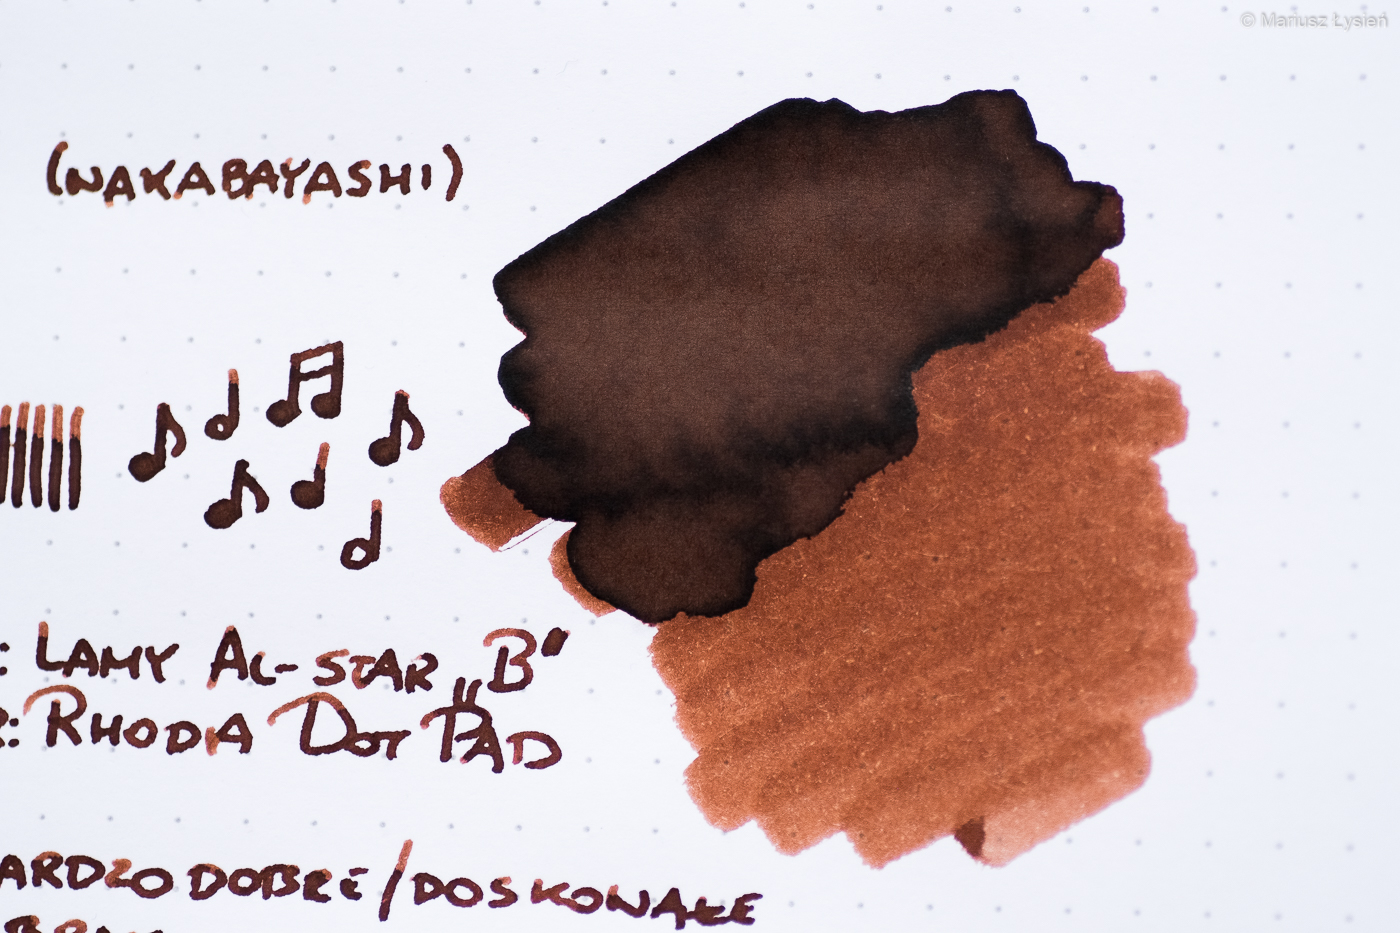 © Mariusz Łysień
(NAKABAYASHI)
: LAMY AL-STAR „B"
R: RHODIA DOT PAD
ARDZO DOBRE/DOSKONAŁE